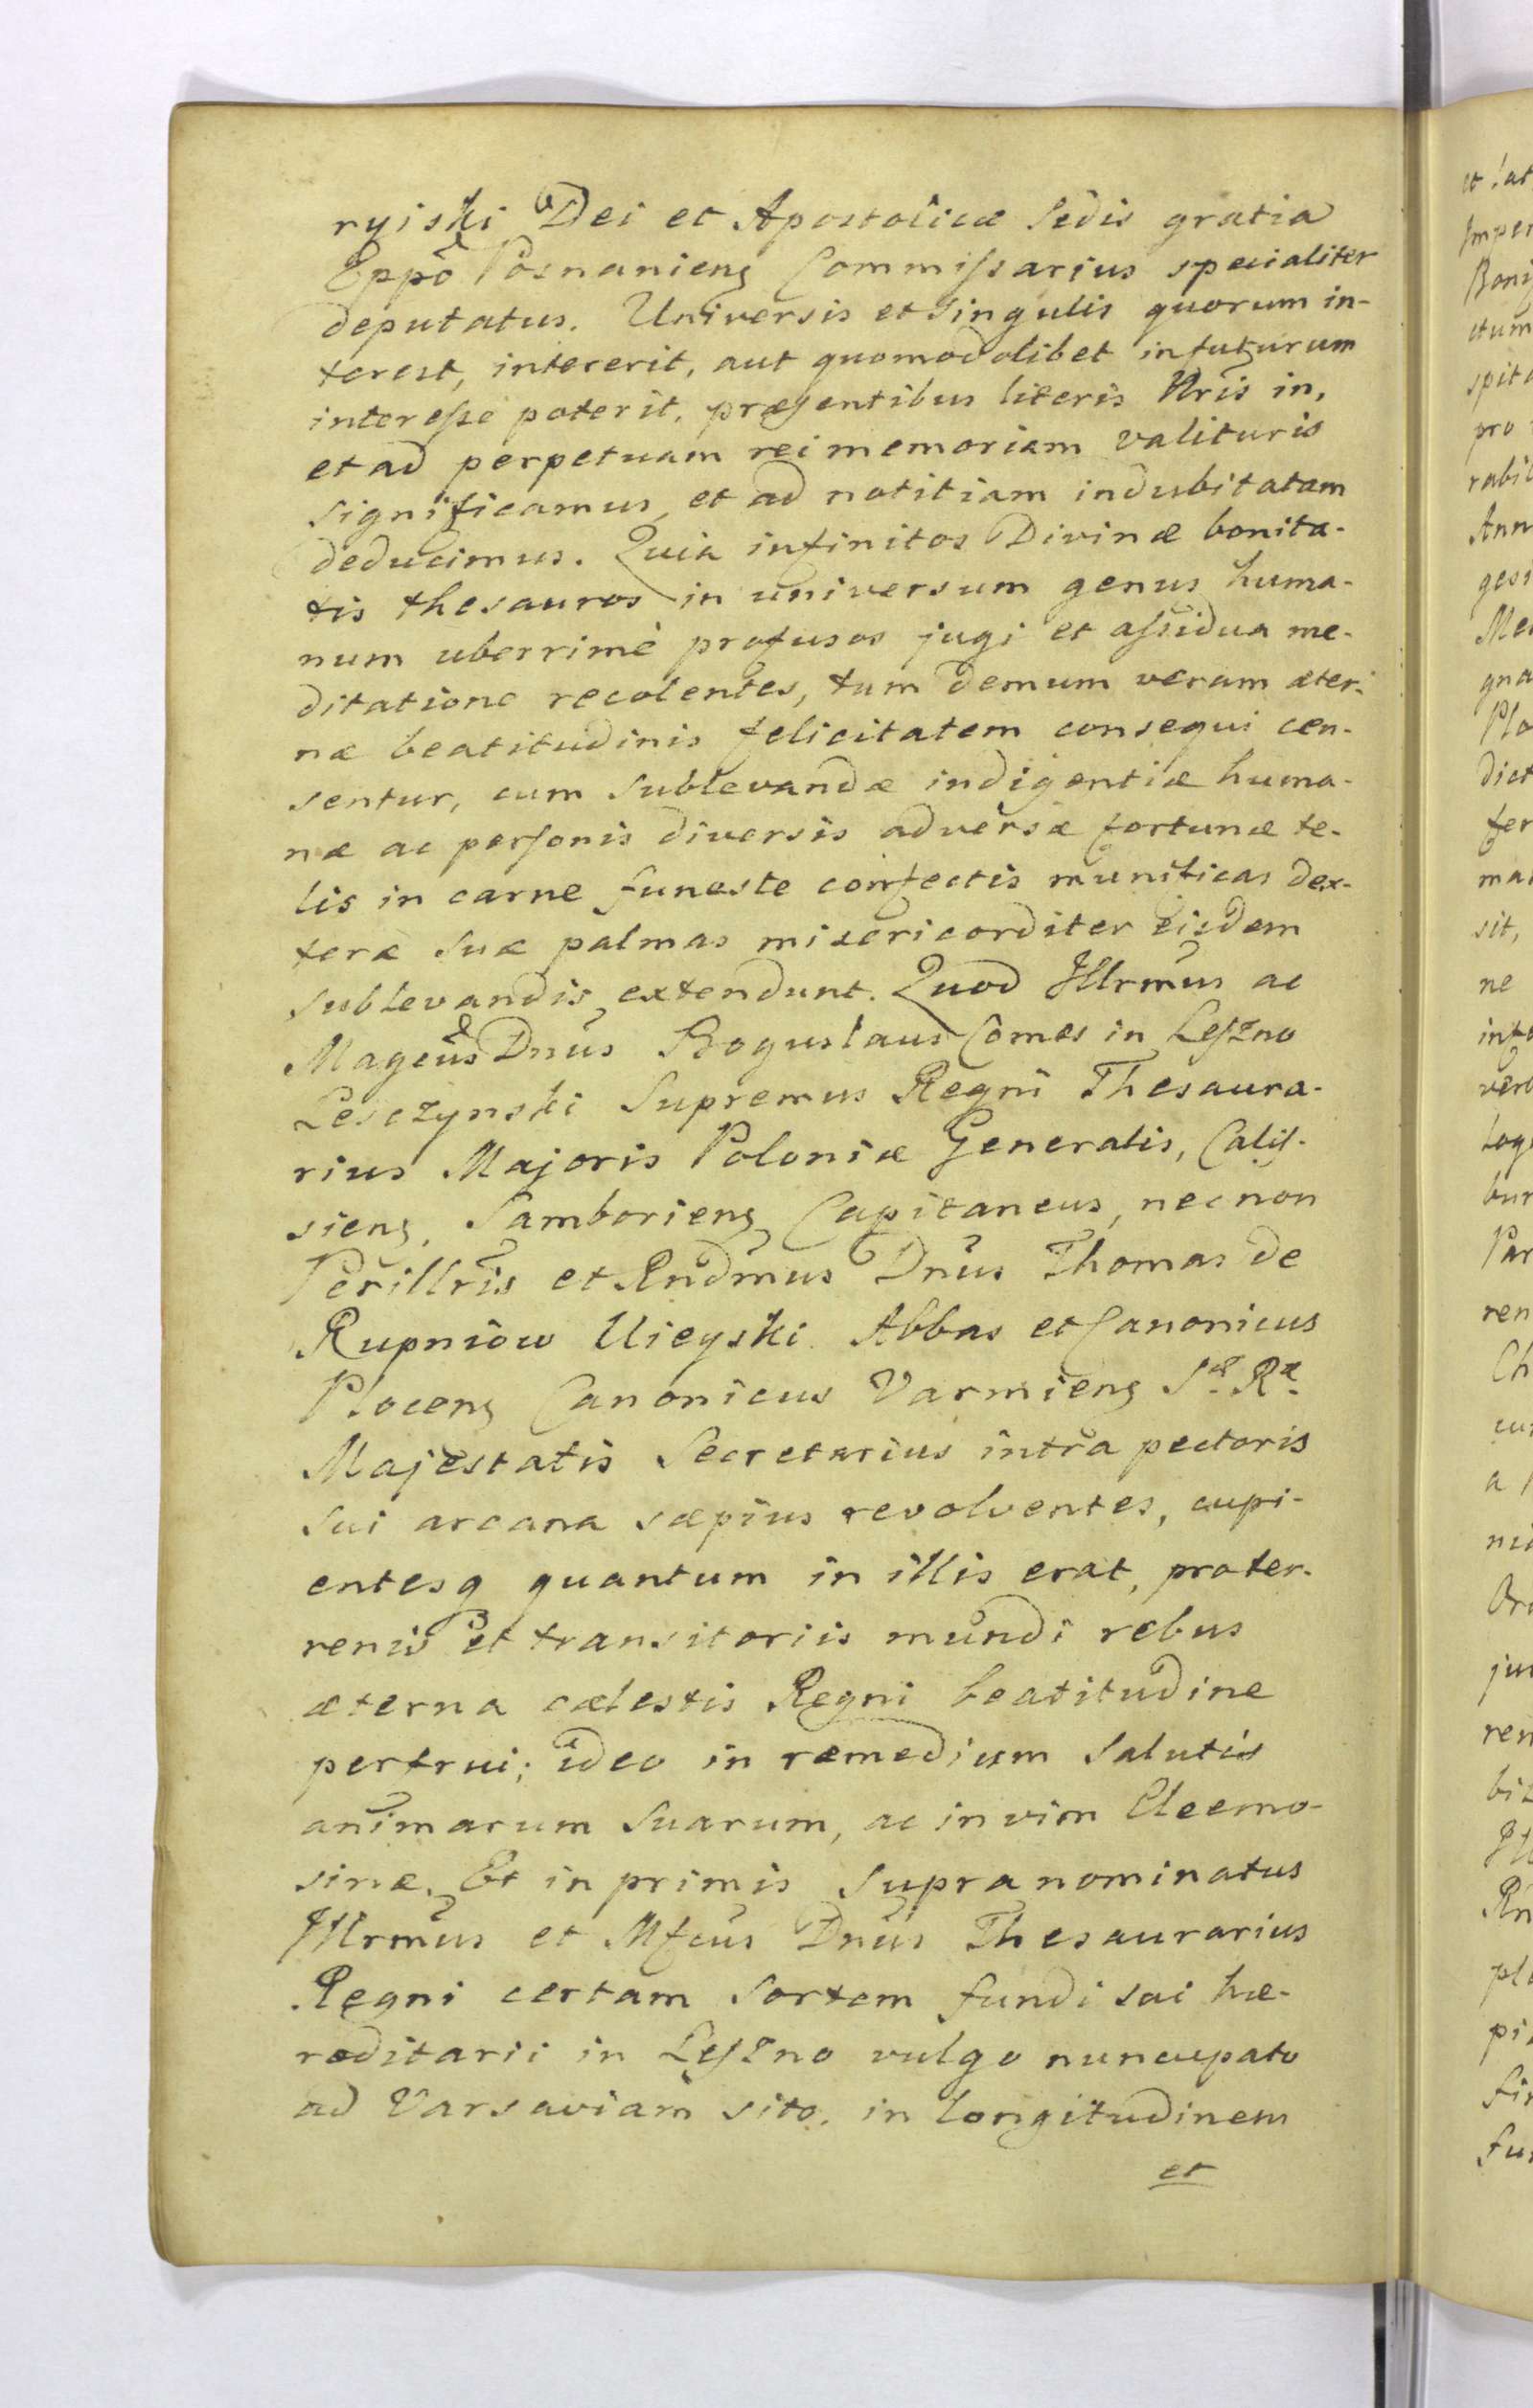 ryiski Dei et Apostolicæ Sedis gratia
Eppõ Posnaniens Commissarius specialiter
deputatus. Universis et singulis quorum in-
terest, intererit, aut quomodolibet in futurum
interesse poterit, præsentibus literis Nris in,
et ad perpetuam rei memoriam valituris
significamus, et ad notitiam indubitatam
deducimus. Quia infinitos Divinæ bonita-
tis thesauros in universum genus huma-
num uberrimè profusos jugi et assidua me-
ditatione recolentes, tum demum veram æter-
næ beatitudinis felicitatem consequi cen-
sentur, cum sublevandæ indigentiæ huma-
næ ac personis diversis adversæ fortunæ te-
lis in carne funeste confectis munificas dex-
teræ suæ palmas misericorditer eisdem
sublevandis extendunt. Quod Illrmũs ac
Magcũs Dnũs Boguslaus Comes in Leszno
Lesczynski Supremus Regni Thesaura-
rius Majoris Poloniæ Generalis, Calis-
siens, Samboriens Capitaneus, nec non
Perillris et Rndmũs Dnũs Thomas de
Rupniow Uieyski Abbas et Canonicus
Plocens Canonicus Varmiens Sæ Ræ
Majestatis Secretarius intra pectoris
sui arcana sæpius revolventes, cupi-
entesq quantum in illis erat, pro ter-
renis et transitoriis mundi rebus
æterna cælestis Regni beatitudine
perfrui; ideo in remedium salutis
animarum suarum, ac in vim Eleemo-
sinæ. Et in primis supra nominatus
Illrmũs et Mfcũs Dnũs Thesaurarius
Regni certam sortem fundi sui hæ-
reditarii in Leszno vulgo nuncupato
ad Varsaviam sito, in longitudinem
et